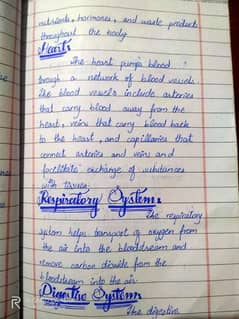 nutrients, hormones, and waste products
throughout the body
Heart:
The heart pumps blood
through a network of blood vessels
The blood vessels include arteries
that carry blood away from the
heart, veins that carry blood back
to the heart, and capillaries that
connect arteries and veins and
facilitate exchange of substances
with tissues.
Respiratory System:
The respiratory
system helps transport of oxygen from
the air into the bloodstream and
remove carbon dioxide from the
bloodstream into the air.
Digestive System:
The digestive